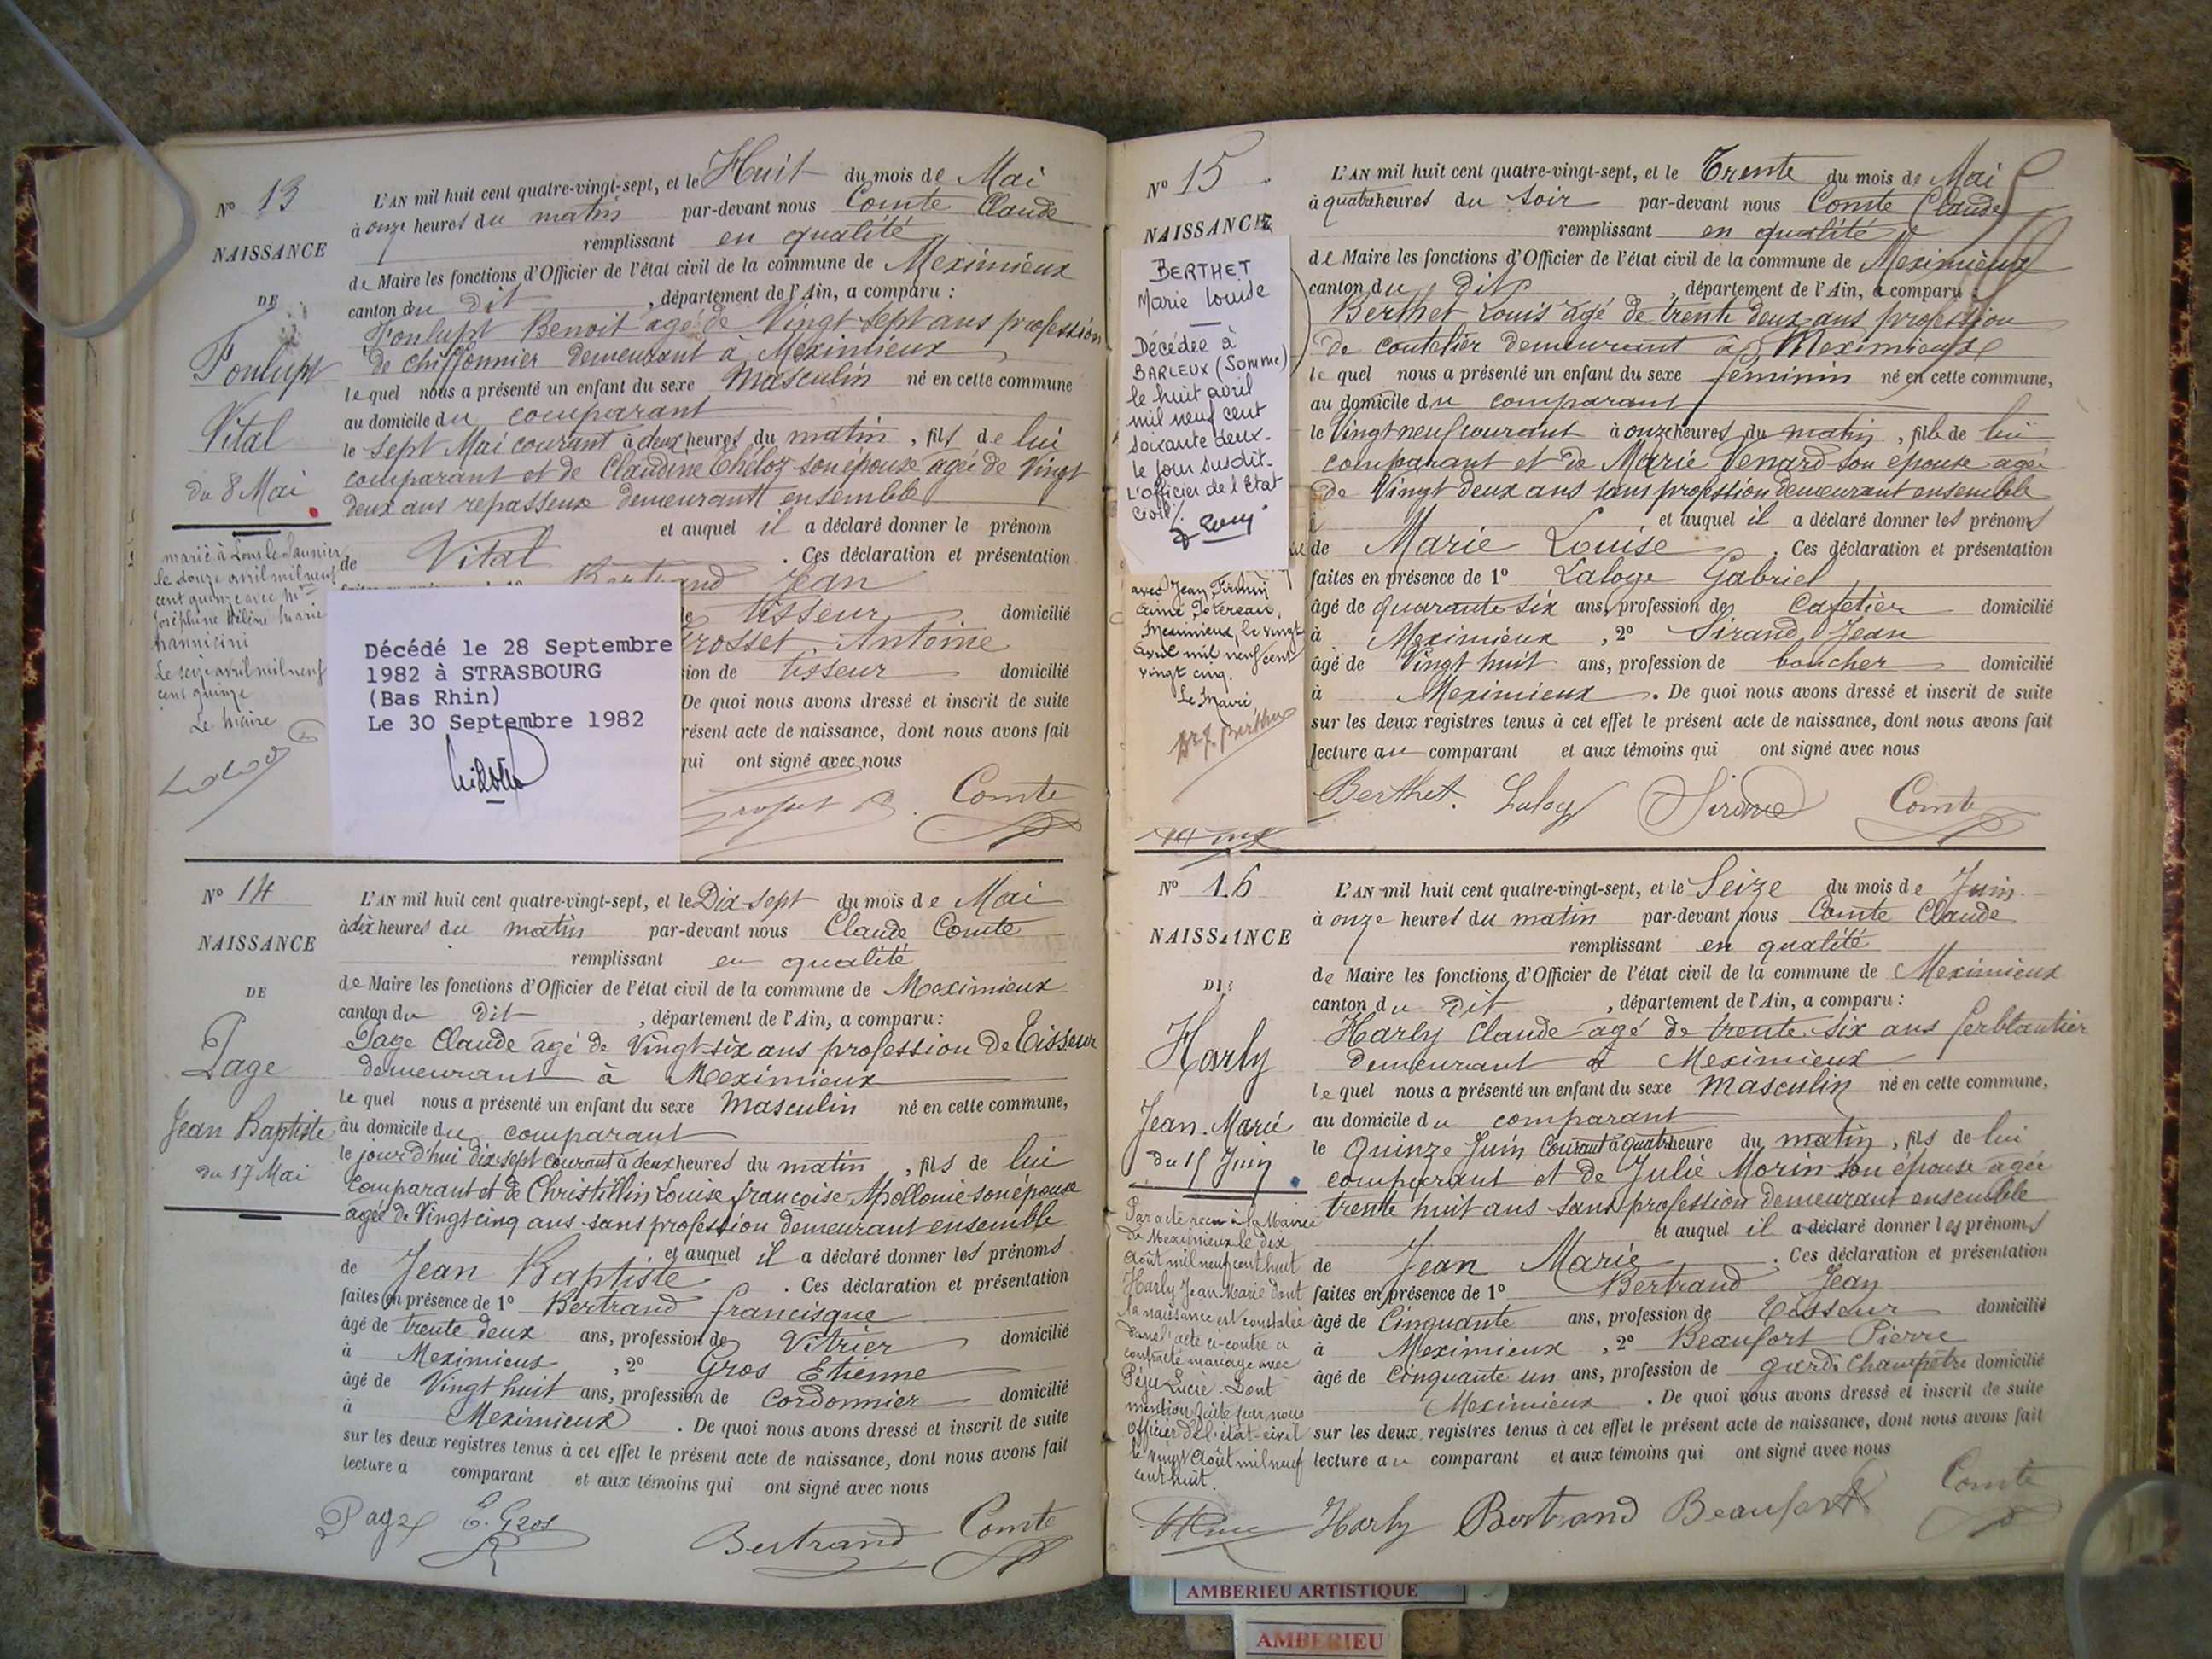 Nº 13
NAISSANCE
DE
Foulupt
Vital
du 8 Mai
marié à Lons le Saunier
le douze avril mil neuf
cent quinze avec Mlle
Joséphine Hélène Marie
Le seize avril mil neuf
cent quinze
Le Maire
L'AN mil huit cent quatre-vingt-sept, et le Huit du mois de Mai
à onze heures du matin par-devant nous Comte Claude
remplissant en qualité
de Maire les fonctions d'Officier de l'état civil de la commune de Meximieux
canton du dit, département de l'Ain, a comparu :
Foulupt Benoit agé de Vingt sept ans profession
de chiffonnier demeurant à Meximieux
lequel nous a présenté un enfant du sexe Masculin né en cette commune
au domicile du comparant
le sept Mai courant à deux heures du matin, fils de lui
comparant et de Claudine Cheloz son épouse agée de Vingt
deux ans repasseuse demeurant ensemble
et auquel il a déclaré donner le prénom
de Vital. Ces déclaration et présentation
Bertrand Jean
de tisseur domicilié
Grosset Antoine
sion de tisseur domicilié
De quoi nous avons dressé et inscrit de suite
résent acte de naissance, dont nous avons fait
qui ont signé avec nous
Décédé le 28 Septembre
1982 à STRASBOURG
(Bas Rhin)
Le 30 Septembre 1982
Comte
Nº 14
NAISSANCE
DE
Page
Jean Baptiste
du 17 Mai
L'AN mil huit cent quatre-vingt-sept, et le Dix-sept du mois de Mai
à dix heures du matin par-devant nous Claude Comte
remplissant en qualité
de Maire les fonctions d'Officier de l'état civil de la commune de Meximieux
canton du dit, département de l'Ain, a comparu :
Page Claude agé de Vingt-six ans profession de Tisseur
demeurant à Meximieux
lequel nous a présenté un enfant du sexe Masculin né en cette commune,
au domicile du comparant
le jourd'hui dix-sept courant à deux heures du matin, fils de lui
comparant et de Christillin Louise françoise Apollonie son épouse
agée de Vingt cinq ans sans profession demeurant ensemble
et auquel il a déclaré donner les prénoms
de Jean Baptiste. Ces déclaration et présentation
faites en présence de 1º Bertrand francisque
âgé de trente deux ans, profession de Vitrier domicilié
à Meximieux, 2º Gros Etienne
âgé de Vingt huit ans, profession de Cordonnier domicilié
à Meximieux. De quoi nous avons dressé et inscrit de suite
sur les deux registres tenus à cet effet le présent acte de naissance, dont nous avons fait
lecture a comparant et aux témoins qui ont signé avec nous
Page E. Gros Bertrand Comte
Nº 15
NAISSANCE
BERTHET
Marie Louise
Décédée à
BARLEUX (Somme)
le huit avril
mil neuf cent
soixante deux.
le jour susdit.
L'officier de l'Etat
Civil
avec Jean Firmin
Aimé Potereau,
Meximieux, le vingt
avril mil neuf cent
vingt cinq.
Le Maire
L'AN mil huit cent quatre-vingt-sept, et le Trente du mois de Mai
à quatre heures du soir par-devant nous Comte Claude
remplissant en qualité
de Maire les fonctions d'Officier de l'état civil de la commune de Meximieux
canton du dit, département de l'Ain, a comparu
Berthet Louis agé de trente deux ans profession
de coutelier demeurant à Meximieux
lequel nous a présenté un enfant du sexe féminin né en cette commune,
au domicile du comparant
le Vingt neuf courant à onze heures du matin, fille de lui
comparant et de Marie Venard son épouse agée
de Vingt deux ans sans profession demeurant ensemble
et auquel il a déclaré donner les prénoms
de Marie Louise. Ces déclaration et présentation
faites en présence de 1º Laloge Gabriel
âgé de quarante six ans, profession de Cafetier domicilié
à Meximieux, 2º Sirand Jean
âgé de Vingt huit ans, profession de boucher domicilié
à Meximieux. De quoi nous avons dressé et inscrit de suite
sur les deux registres tenus à cet effet le présent acte de naissance, dont nous avons fait
lecture au comparant et aux témoins qui ont signé avec nous
Berthet. Laloge Sirand Comte
Nº 16
NAISSANCE
DE
Harly
Jean-Marie
du 15 Juin
Par acte reçu à la Mairie
de Meximieux le dix
Août mil neuf cent huit
Harly Jean Marie dont
la naissance est constatée
dans l'acte ci-contre a
contracté mariage avec
Péju Lucie. Dont
mention faite par nous
Officier de l'état-civil
le vingt Août mil neuf
cent huit.
L'AN mil huit cent quatre-vingt-sept, et le Seize du mois de Juin
à onze heures du matin par-devant nous Comte Claude
remplissant en qualité
de Maire les fonctions d'Officier de l'état civil de la commune de Meximieux
canton du dit, département de l'Ain, a comparu :
Harly Claude agé de trente-six ans ferblantier
demeurant à Meximieux
lequel nous a présenté un enfant du sexe Masculin né en cette commune,
au domicile du comparant
le Quinze Juin Courant à quatre heure du matin, fils de lui
comparant et de Julie Morin son épouse agée
trente huit ans sans profession demeurant ensemble
et auquel il a déclaré donner les prénoms
de Jean Marie. Ces déclaration et présentation
faites en présence de 1º Bertrand Jean
âgé de Cinquante ans, profession de Tisseur domicilié
à Meximieux, 2º Beaufort Pierre
âgé de Cinquante un ans, profession de garde Champêtre domicilié
Meximieux. De quoi nous avons dressé et inscrit de suite
sur les deux registres tenus à cet effet le présent acte de naissance, dont nous avons fait
lecture au comparant et aux témoins qui ont signé avec nous
Harly Bertrand Beaufort Comte
AMBERIEU ARTISTIQUE
AMBERIEU